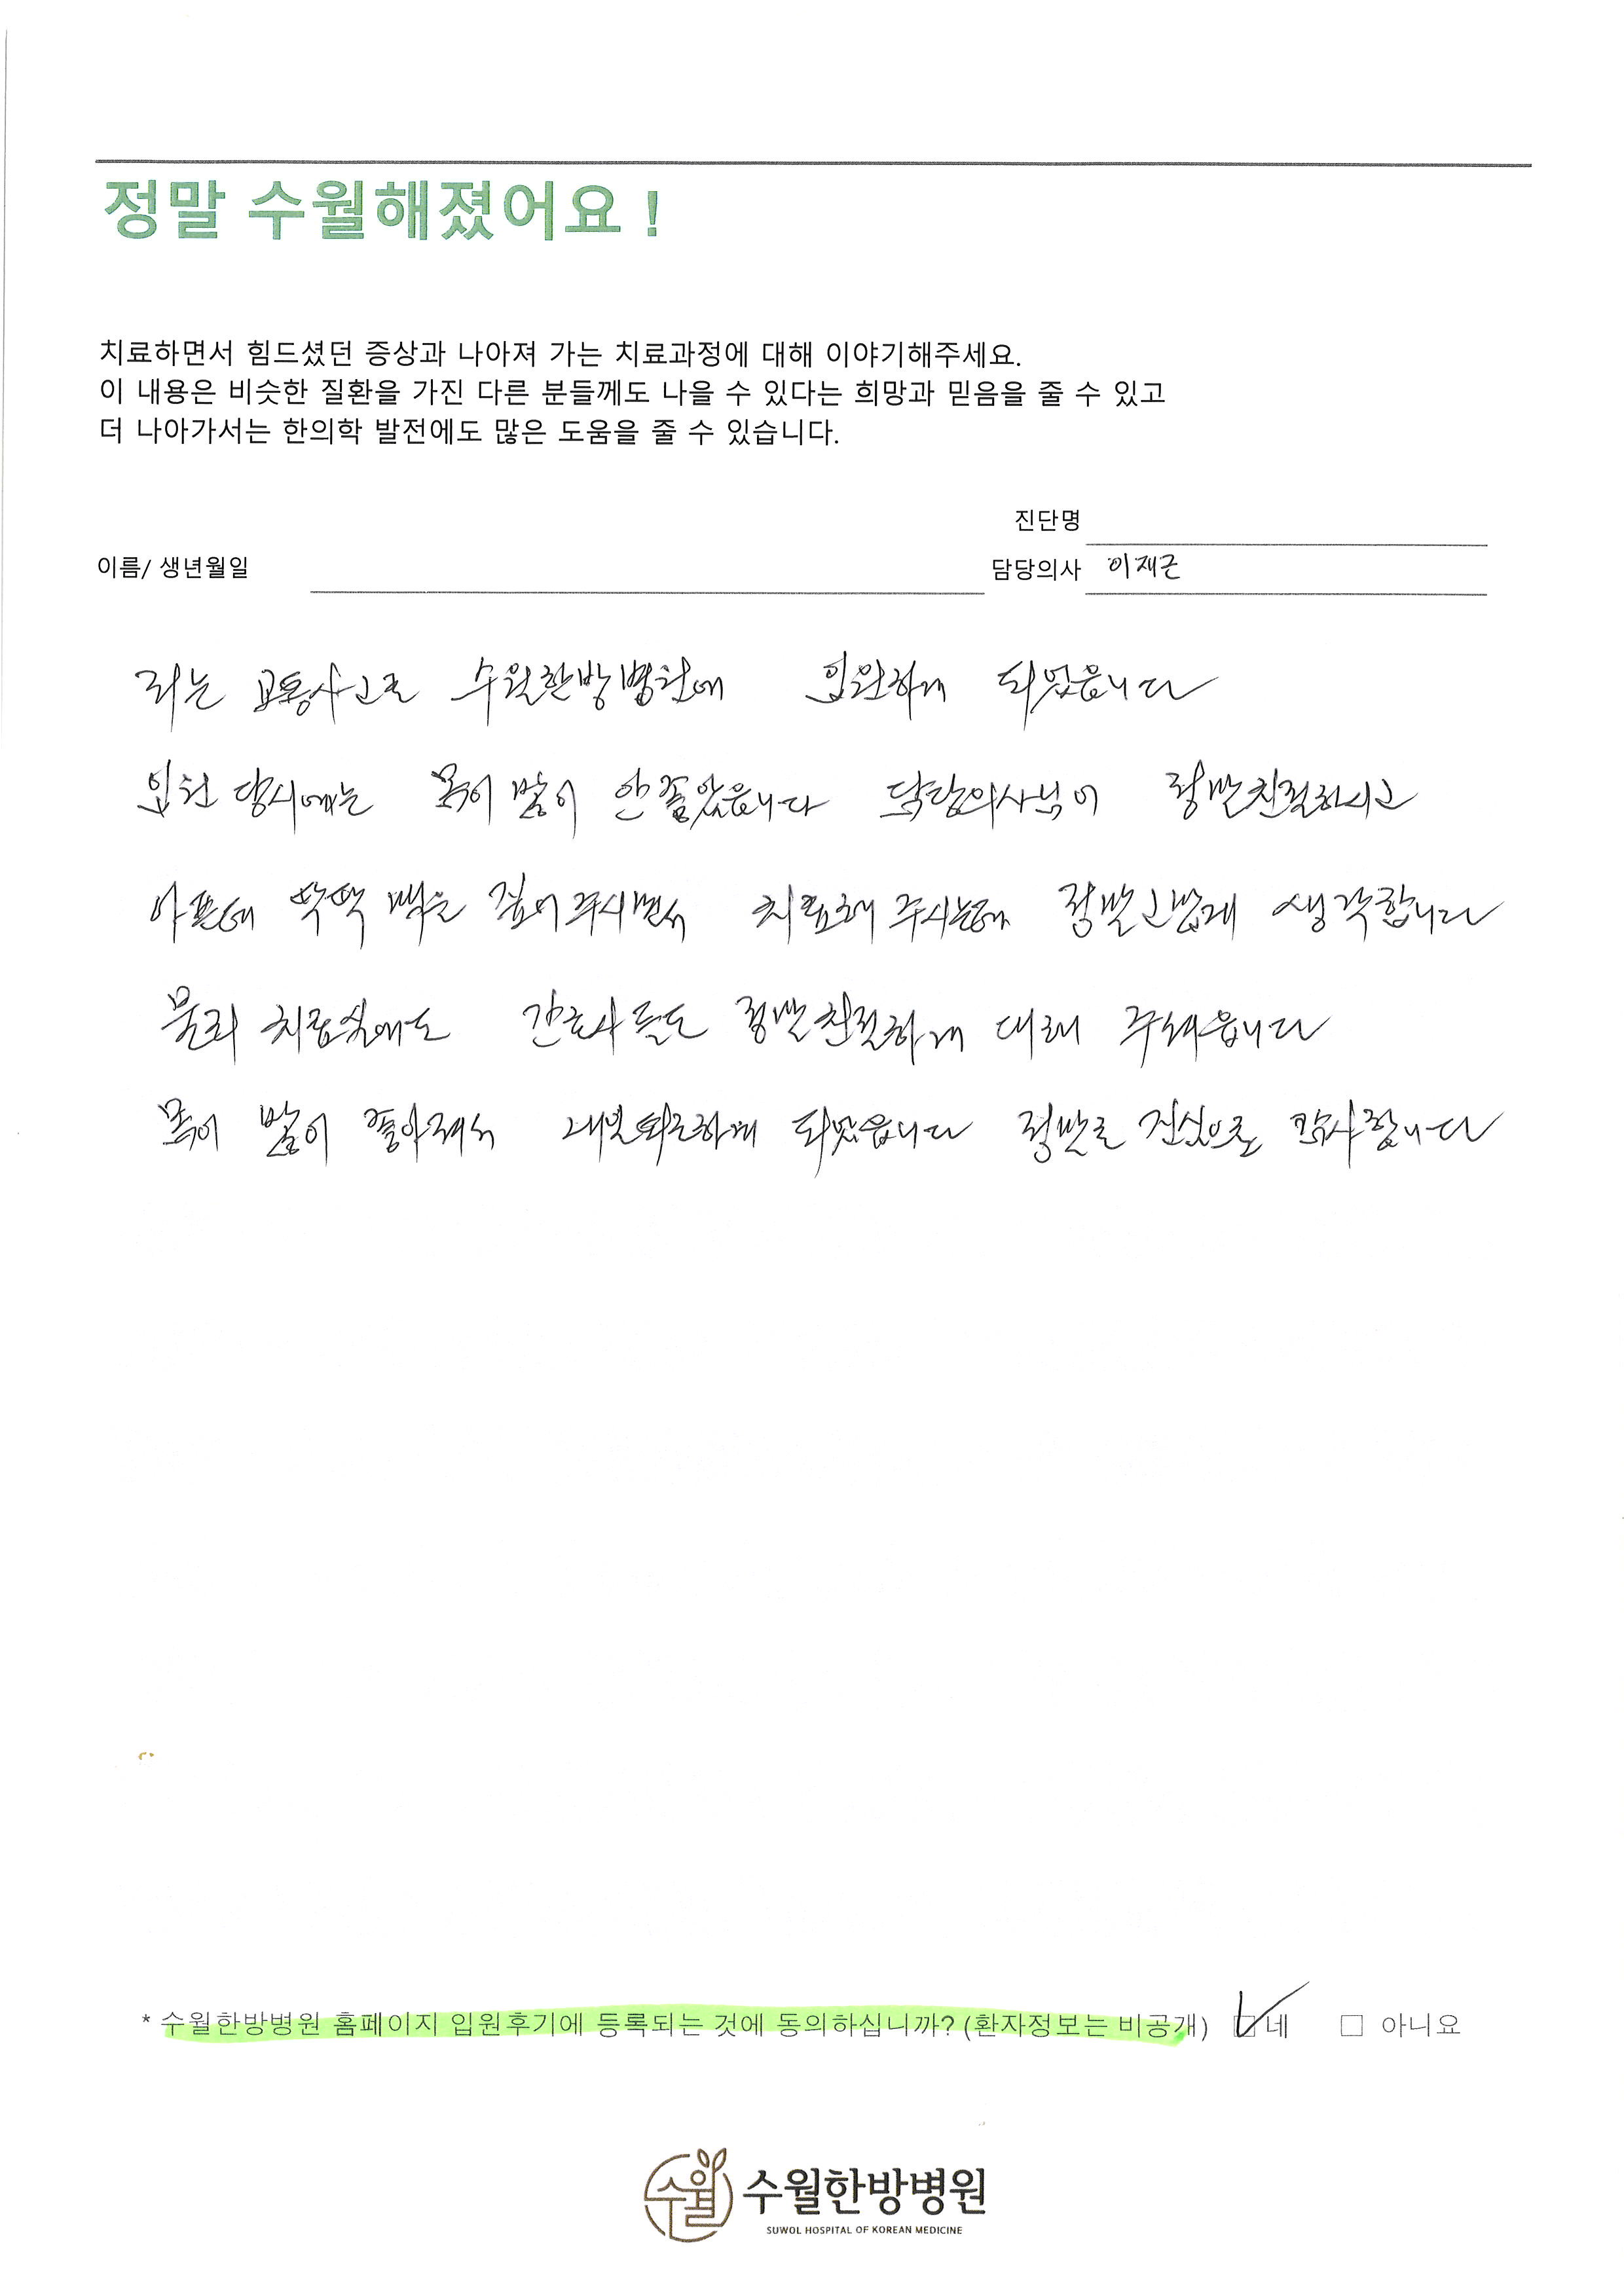 정말 수월해졌어요 !
치료하면서 힘드셨던 증상과 나아져 가는 치료과정에 대해 이야기해주세요.
이 내용은 비슷한 질환을 가진 다른 분들께도 나을 수 있다는 희망과 믿음을 줄 수 있고
더 나아가서는 한의학 발전에도 많은 도움을 줄 수 있습니다.
진단명
이름/ 생년월일
담당의사 이재근
저는 교통사고로 수월한방병원에 입원하게 되었읍니다
입원 당시에는 목이 많이 안좋았읍니다 담당의사님이 정말친절하시고
아픈데 딱딱 맥을 짚어주시면서 치료해 주시는데 정말고맙게 생각합니다
물리 치료실에도 간호사들도 정말친절하게 대해 주셔읍니다
목이 많이 좋아져서 내일퇴원하게 되었읍니다 정말로 진심으로 감사합니다
* 수월한방병원 홈페이지 입원후기에 등록되는 것에 동의하십니까? (환자정보는 비공개) 네 아니요
수월 수월한방병원
SUWOL HOSPITAL OF KOREAN MEDICINE